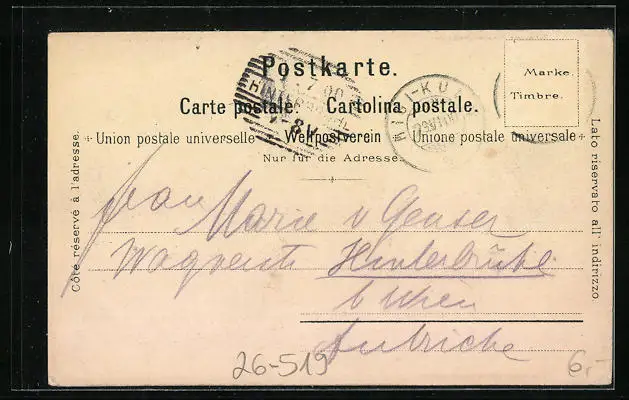 Postkarte.
Carte postale. Cartolina postale.
Marke.
Timbre.
Union postale universelle Weltpostverein Unione postale universale
Nur für die Adresse.
Côté réservé à l'adresse.
Lato riservato all' indirizzo.
RIGI-KU
Frau Marie v
Hinterbrühl
b Wien
Autriche
26-519
6.-